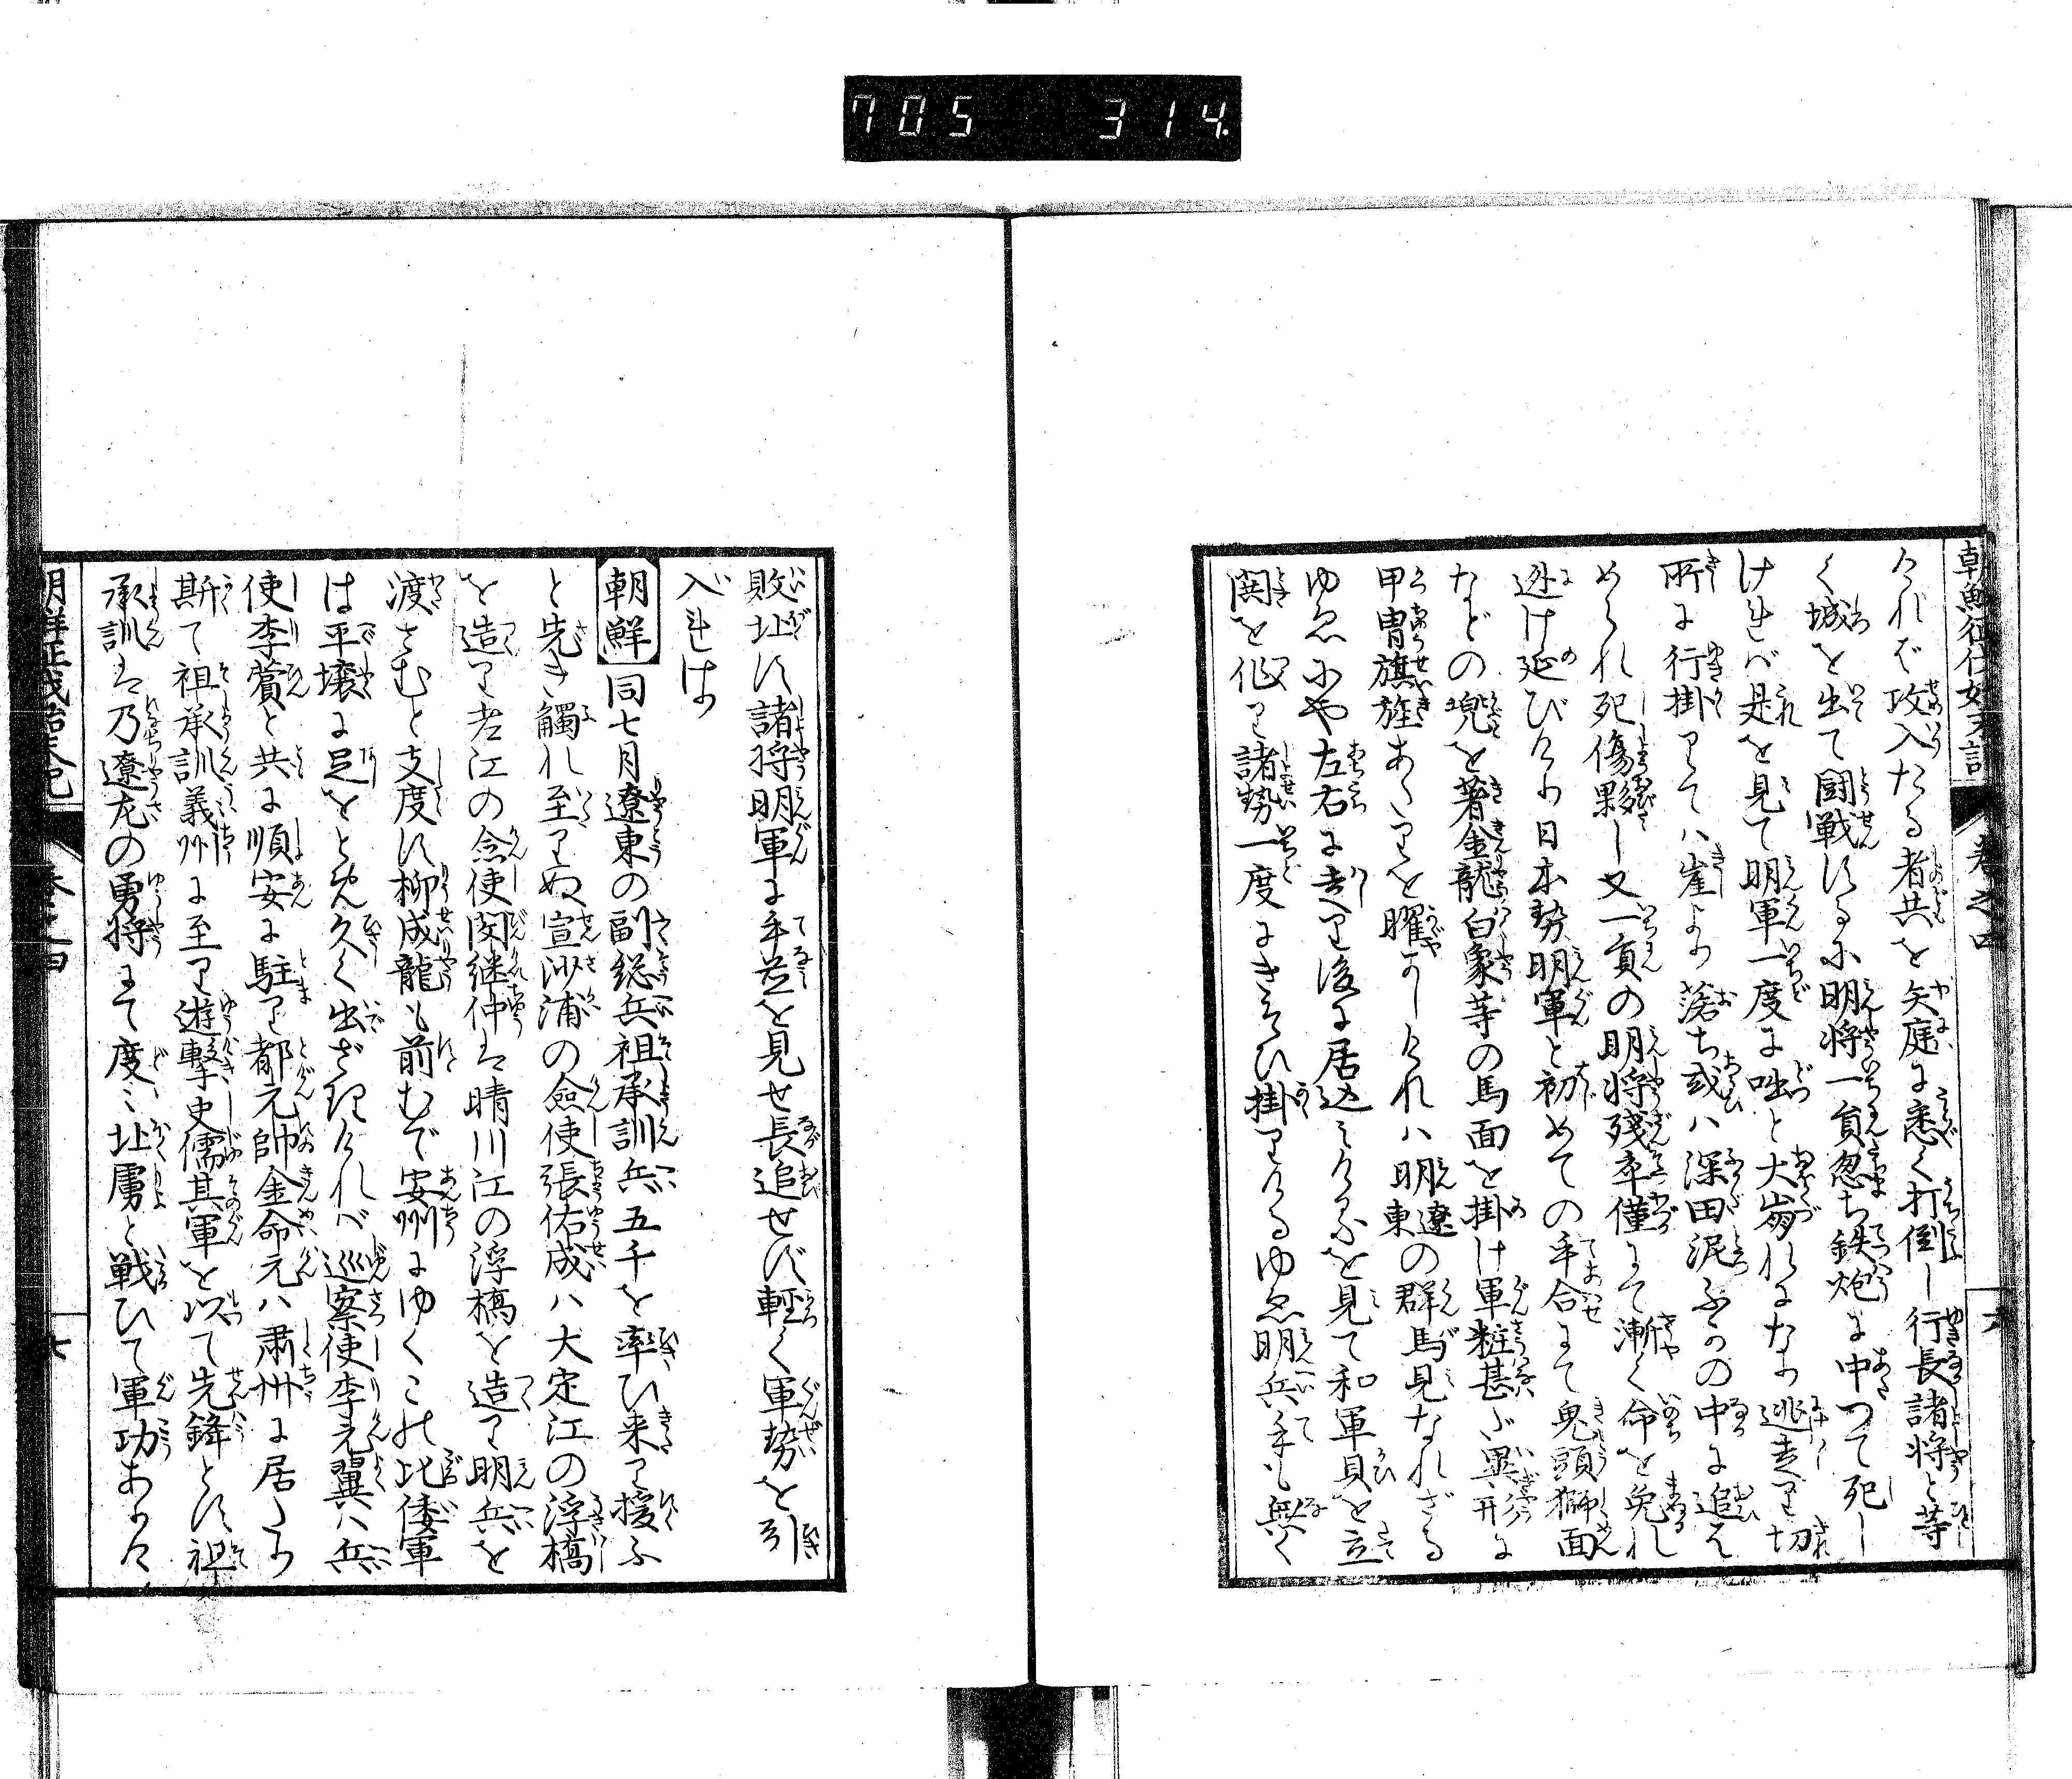 705 314
朝鮮征伐始末記 巻之四 六
れバ攻入たる者共を矢庭に悉く打倒し行長諸将と等し
く城を出て闘戦するに明将一員忽ち鉄炮に中つて死し
けれバ是を見て明軍一度に咄と大崩れになり逃走り切
所に行掛りてハ崖より落ち或ハ深田泥ふかの中に追は
められ死傷夥し又一員の明将残卒僅にて漸く命を免れ
逃け延びけり日本勢明軍と初めての手合にて鬼頭獅面
などの兜を著金龍白象等の馬面を掛け軍粧甚ダ異形に
甲冑旗旌あたりを曜かしけれハ明遼東の群馬見なれざる
ゆゑにや左右に走り後に居込みけるを見て和軍貝を立
鬨を作り諸勢一度にきそひ掛りけるゆゑ明兵手も無く
敗北す諸将明軍に手並を見せ長追せず軽く軍勢を引
入れけり
朝鮮 同七月遼東の副総兵祖承訓兵五千を率ひ来り援ふ
と先き觸れ至りぬ宣沙浦の僉使張佑成ハ大定江の浮橋
を造り老江の僉使閔継仲は晴川江の浮橋を造り明兵を
渡さむと支度す柳成龍も前むで安州にゆくこの比倭軍
は平壌に足をとめ久く出ざりけれバ巡察使李元翼ハ兵
使李薲と共に順安に駐り都元帥金命元ハ粛州に居たり
斯て祖承訓義州に至り遊撃史儒其軍を以て先鋒とす祖
承訓は乃遼左の勇将にて度〻北虜と戦ひて軍功ありけ
朝鮮征伐始末記 巻之四 七